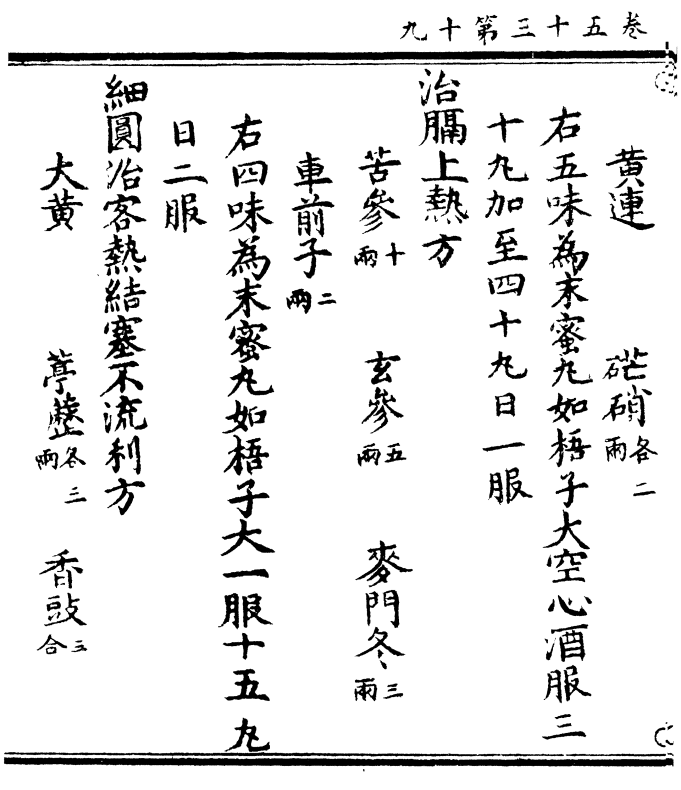 卷五十三第十九
黃連 硭硝各二兩
右五味為末蜜丸如梧子大空心酒服三
十丸加至四十丸日一服
治膈上熱方
苦參十兩 玄參五兩 麥門冬三兩
車前子二兩
右四味為末蜜丸如梧子大一服十五丸
日二服
細圓治客熱結塞不流利方
大黃 葶藶各三兩 香豉三合